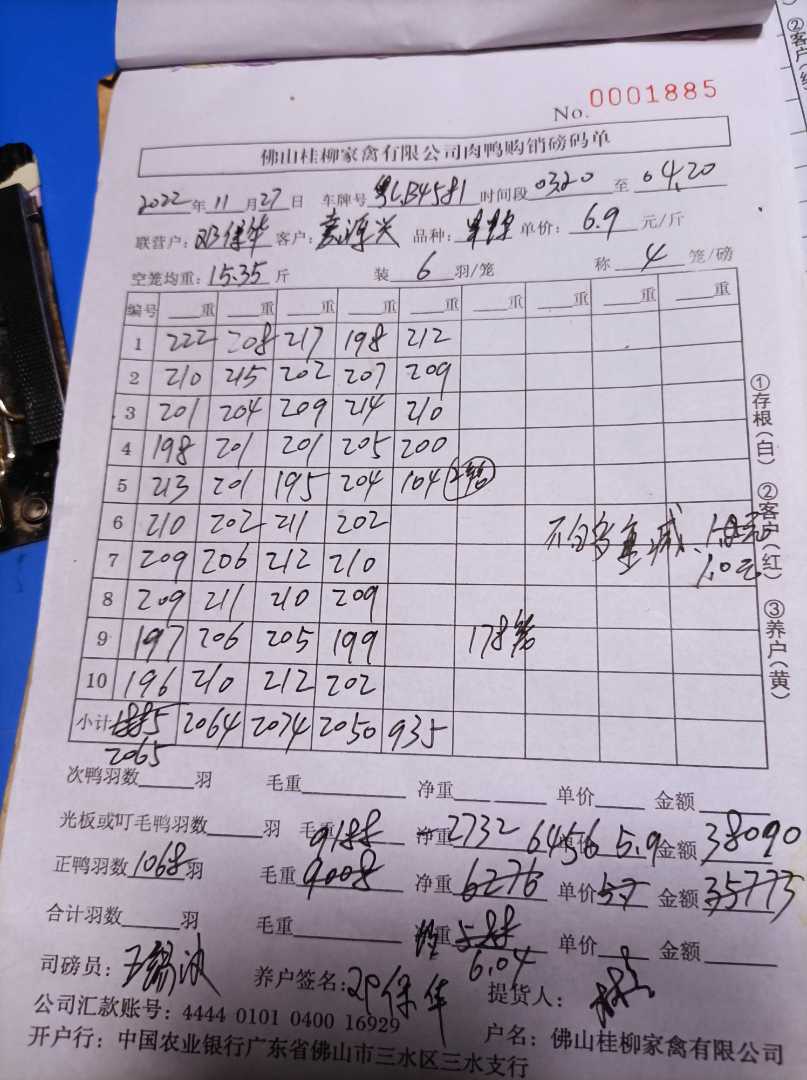 No. 0001885
佛山桂柳家禽有限公司肉鸭购销磅码单
2022年11月27日 车牌号 粤LB4581 时间段 0320 至 0420
联营户: 邓保华 客户: 袁源兴 品种: 单价: 6.9 元/斤
空笼均重: 15.35 斤 装 6 羽/笼 称 4 笼/磅
编号 重 重 重 重 重 重 重 重 重
1 222 208 217 198 212
2 210 215 202 207 209
3 201 204 209 214 210
4 198 201 201 205 200
5 213 201 195 204 104 2笼
6 210 202 211 202
不包含重减 1.8元
7 209 206 212 210
1.0元
8 209 211 210 209
9 197 206 205 199 178笼
10 196 210 212 202
小计 1885 2064 2074 2050 935
2065
次鸭羽数 羽 毛重 净重 单价 金额
光板或叮毛鸭羽数 羽 毛重 9188 净重 2732 6456 单价 5.9 金额 38090
正鸭羽数 1068 羽 毛重 9008 净重 6276 单价 5.7 金额 35773
合计羽数 羽 毛重 净重 5.88 单价 金额
6.04
司磅员: 养户签名: 邓保华 提货人:
公司汇款账号: 4444 0101 0400 16929
开户行: 中国农业银行广东省佛山市三水区三水支行 户名: 佛山桂柳家禽有限公司
①存根(白) ②客户(红) ③养户(黄)
②客户(红